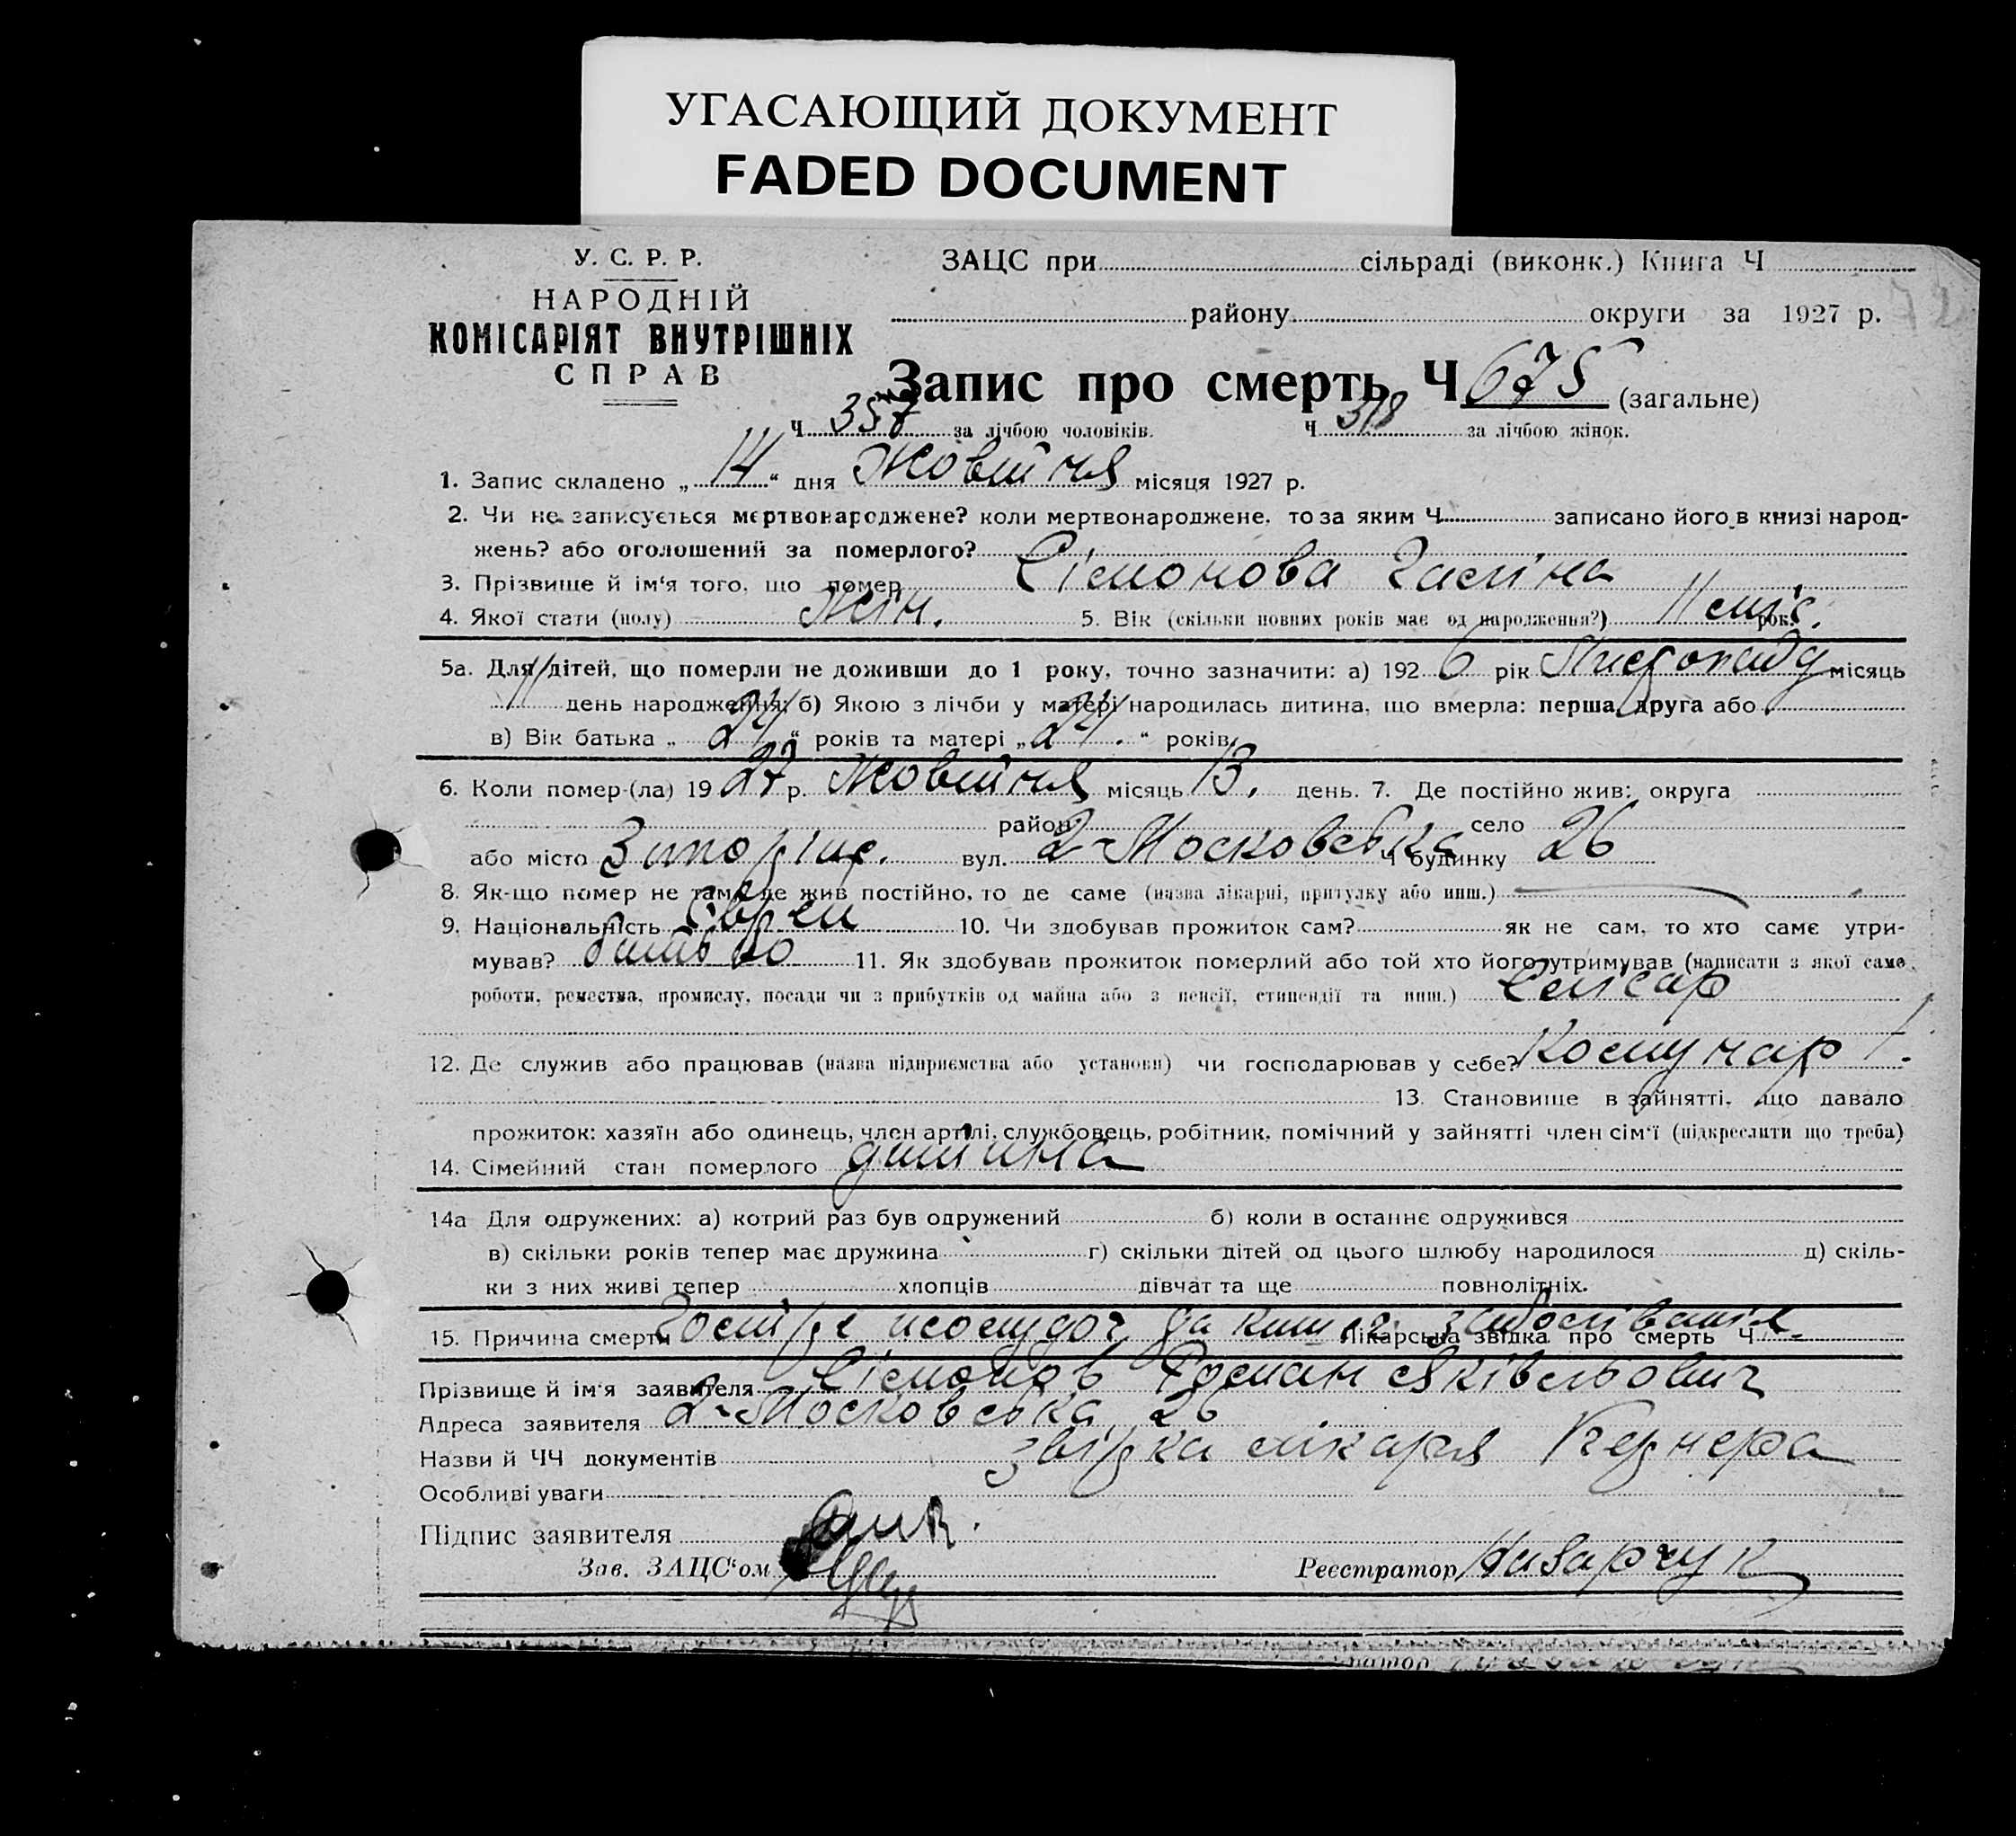 УГАСАЮЩИЙ ДОКУМЕНТ
FADED DOCUMENT
У. С. Р. Р.
НАРОДНІЙ
КОМІСАРІЯТ ВНУТРІШНІХ
СПРАВ
ЗАЦС при сільраді (виконк.) Книга Ч
району округи за 1927 р.
Запис про смерть Ч 675 (загальне)
Ч 357 за лічбою чоловіків. Ч 318 за лічбою жінок.
1. Запис складено „14“ дня Жовтня місяця 1927 р.
2. Чи не записується мертвонароджене? коли мертвонароджене, то за яким Ч записано його в книзі народ-
жень? або оголошений за померлого?
3. Прізвище й ім'я того, що помер Сімонова Галіна
4. Якої стати (полу) Жін. 5. Вік (скільки повних років має од народження?) 11 міс. рок.
5а. Для дітей, що померли не доживши до 1 року, точно зазначити: а) 1926 рік Листопаду місяць
11 день народження; б) Якою з лічби у матері народилась дитина, що вмерла: перша, друга або
в) Вік батька „24“ років та матері „24.“ років.
6. Коли помер-(ла) 1927 р. Жовтня місяць 13. день. 7. Де постійно жив: округа
район село
або місто Запоріжж. вул. 2-Московська Ч будинку 26
8. Як-що помер не там, де жив постійно, то де саме (назва лікарні, притулку або инш.)
9. Національність Єврей 10. Чи здобував прожиток сам? як не сам, то хто саме утри-
мував? батько 11. Як здобував прожиток померлий або той хто його утримував (написати з якої саме
роботи, ремества, промислу, посади чи з прибутків од майна або з пенсії, стипендії та инш.) Слюсар
12. Де служив або працював (назва підприємства або установи) чи господарював у себе? Комунар
13. Становище в зайнятті, що давало
прожиток: хазяїн або одинець, член артілі, службовець, робітник, помічний у зайнятті член сім'ї (підкреслити що треба)
14. Сімейний стан померлого дитина
14а Для одружених: а) котрий раз був одружений б) коли в останнє одружився
в) скільки років тепер має дружина г) скільки дітей од цього шлюбу народилося д) скіль-
ки з них живі тепер хлопців дівчат та ще повнолітніх.
15. Причина смерти Гостре захворіваніє Лікарська звідка про смерть Ч
Прізвище й ім'я заявителя Сімонов Роман
Адреса заявителя 2-Московська 26
Назви й ЧЧ документів звідка лікаря
Особливі уваги
Підпис заявителя
Зав. ЗАЦС'ом
Реєстратор Назарчук